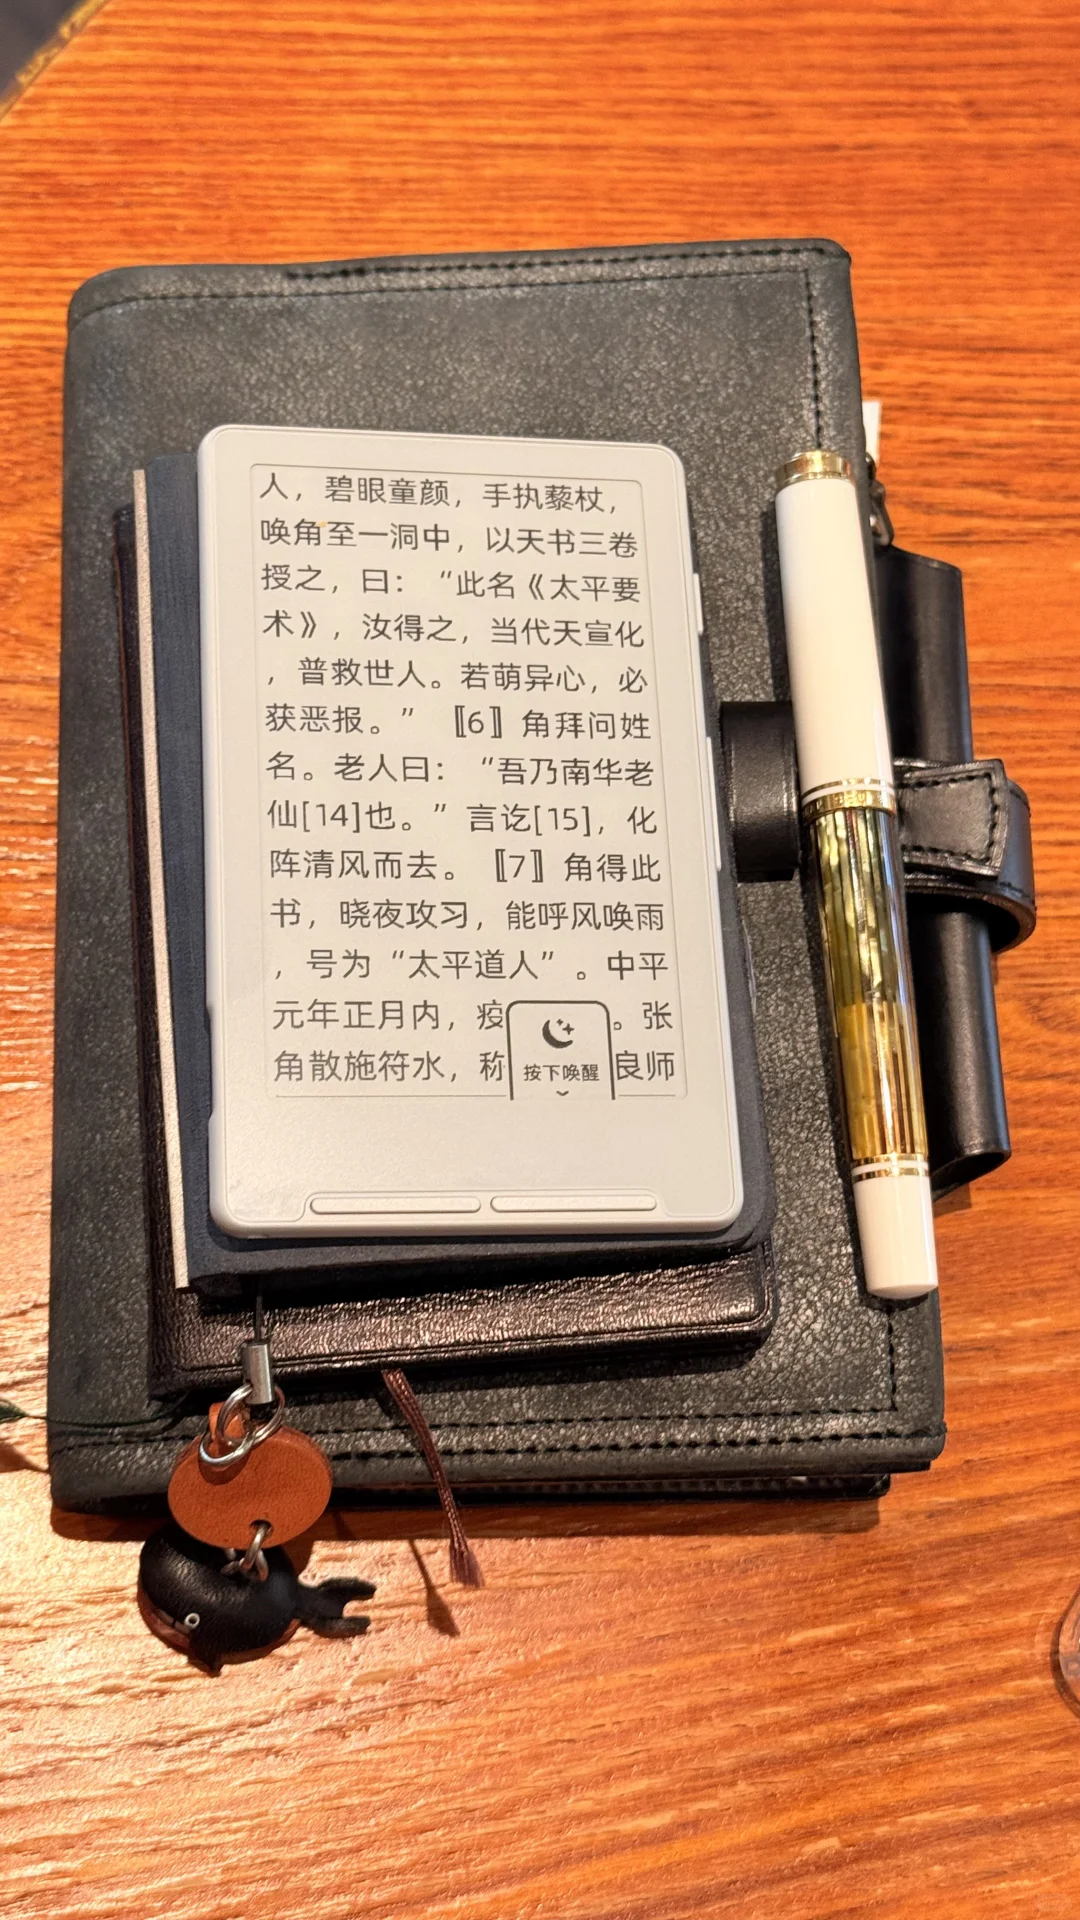 人，碧眼童颜，手执藜杖，
唤角至一洞中，以天书三卷
授之，曰：“此名《太平要
术》，汝得之，当代天宣化
，普救世人。若萌异心，必
获恶报。”〖6〗角拜问姓
名。老人曰：“吾乃南华老
仙[14]也。”言讫[15]，化
阵清风而去。〖7〗角得此
书，晓夜攻习，能呼风唤雨
，号为“太平道人”。中平
元年正月内，疫 。张
角散施符水，称 良师
按下唤醒